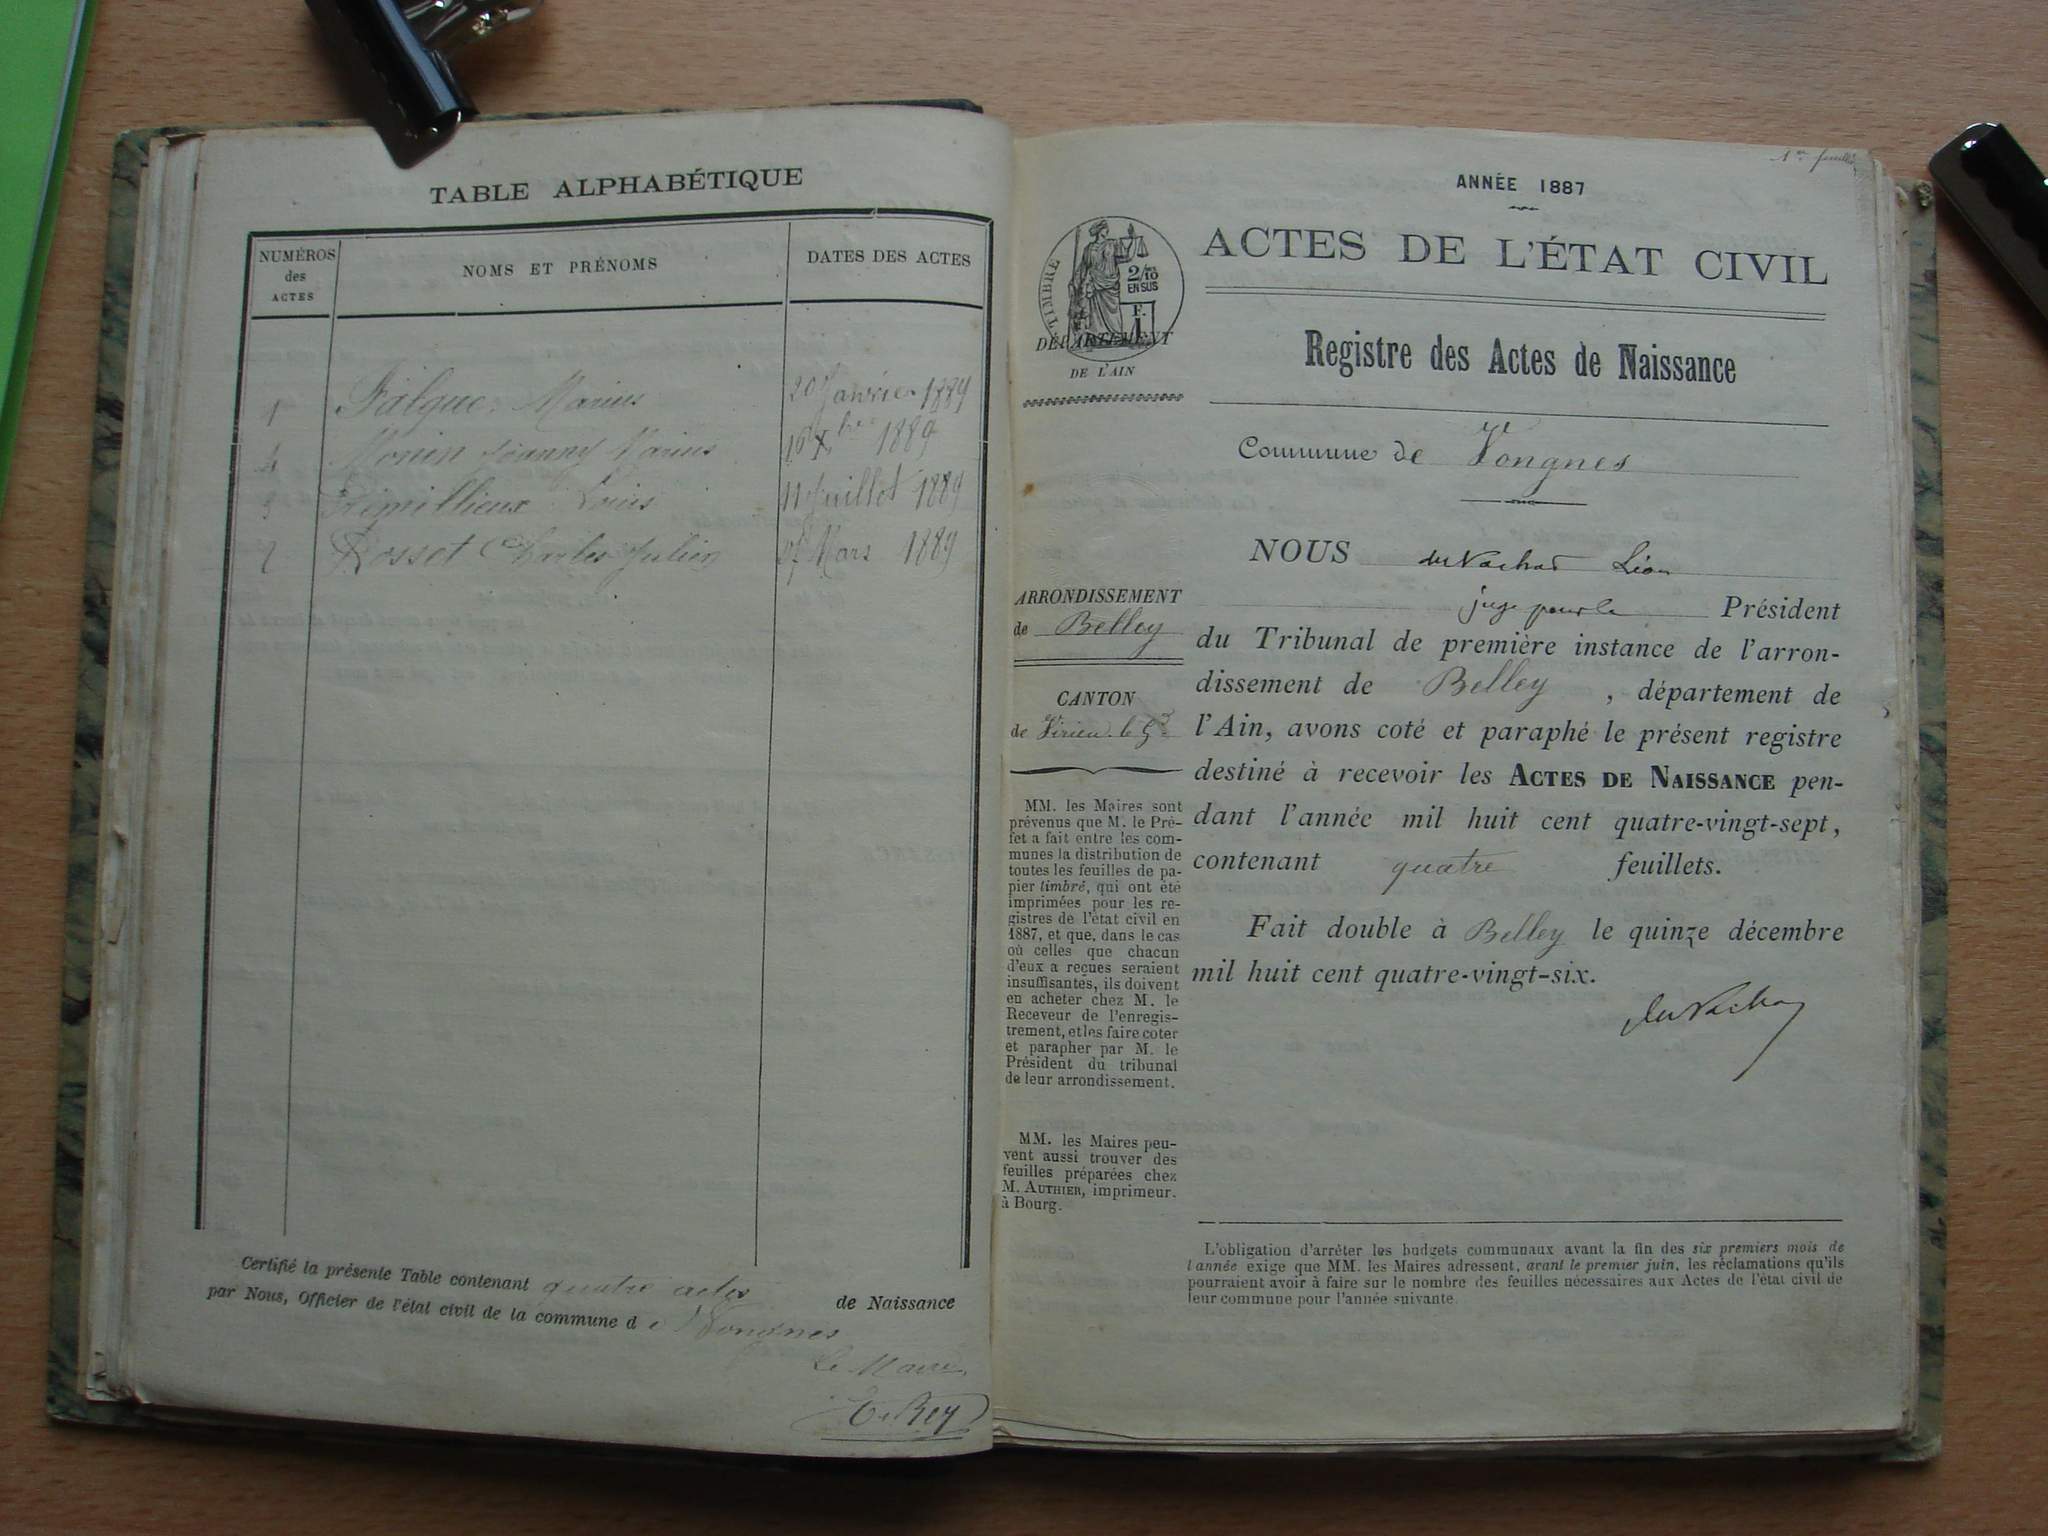 TABLE ALPHABÉTIQUE
NUMÉROS des ACTES
NOMS ET PRÉNOMS
DATES DES ACTES
1 Falque Marius 20 Janvier 1889
4 Monin Joanny Marius 16 Xbre 1889
3 Louis 11 Juillet 1889
2 Rosset Charles Julien 27 Mars 1889
Certifié la présente Table contenant quatre actes de Naissance
par Nous, Officier de l'état civil de la commune de Vongnes
Le Maire
Rey
1er feuillet
ANNÉE 1887
TIMBRE
2/10
EN SUS
F.
1
DÉPARTEMENT
DE L'AIN
ACTES DE L'ÉTAT CIVIL
Registre des Actes de Naissance
Commune de Vongnes
ARRONDISSEMENT
de Belley
CANTON
de Virieu-le-Gd
MM. les Maires sont
prévenus que M. le Pré-
fet a fait entre les com-
munes la distribution de
toutes les feuilles de pa-
pier timbré, qui ont été
imprimées pour les re-
gistres de l'état civil en
1887, et que, dans le cas
où celles que chacun
d'eux a reçues seraient
insuffisantes, ils doivent
en acheter chez M. le
Receveur de l'enregis-
trement, et les faire coter
et parapher par M. le
Président du tribunal
de leur arrondissement.
MM. les Maires peu-
vent aussi trouver des
feuilles préparées chez
M. AUTHIER, imprimeur.
à Bourg.
NOUS Léon
juge pour le Président
du Tribunal de première instance de l'arron-
dissement de Belley, département de
l'Ain, avons coté et paraphé le présent registre
destiné à recevoir les ACTES DE NAISSANCE pen-
dant l'année mil huit cent quatre-vingt-sept,
contenant quatre feuillets.
Fait double à Belley le quinze décembre
mil huit cent quatre-vingt-six.
L'obligation d'arrêter les budgets communaux avant la fin des six premiers mois de
l'année exige que MM. les Maires adressent, avant le premier juin, les réclamations qu'ils
pourraient avoir à faire sur le nombre des feuilles nécessaires aux Actes de l'état civil de
leur commune pour l'année suivante.